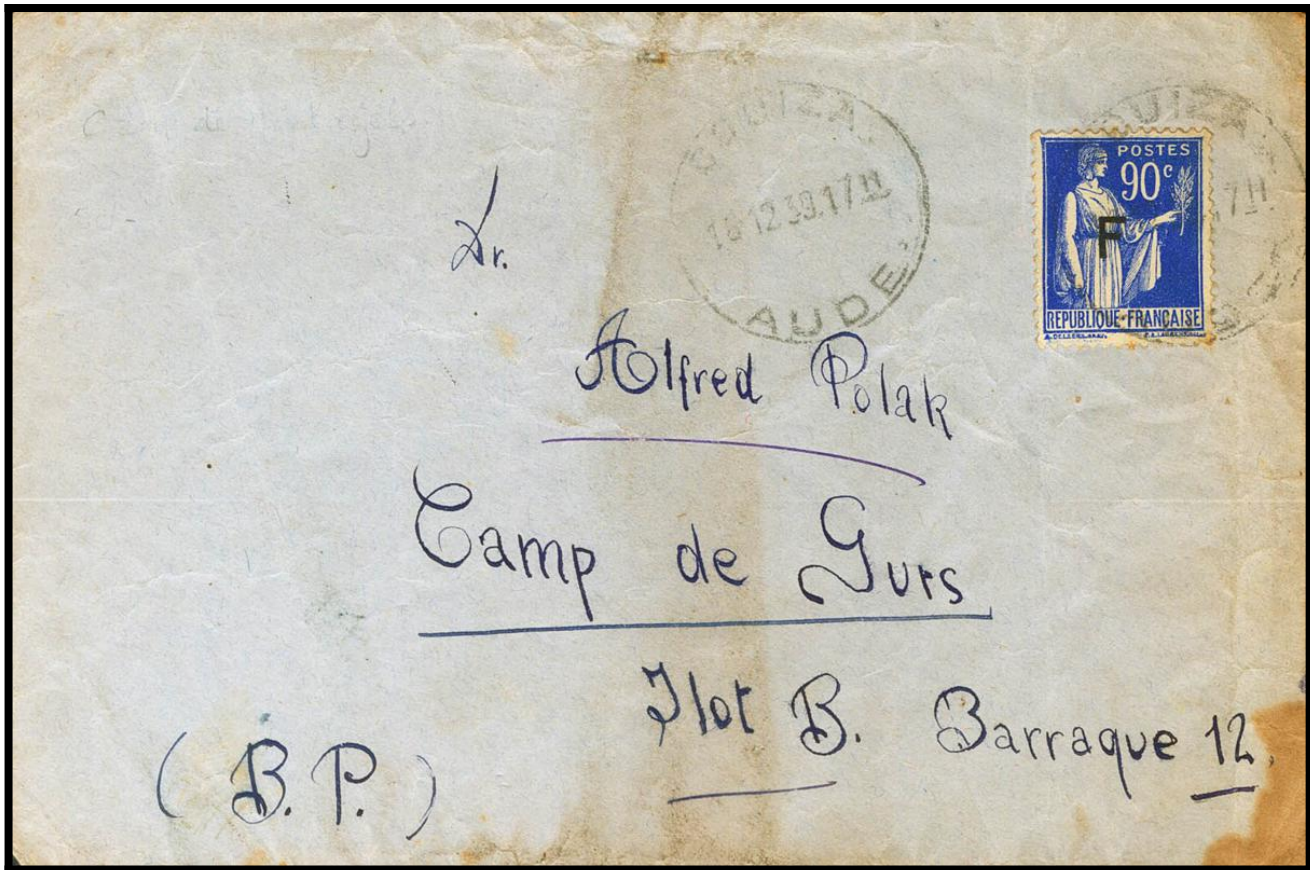 Camp de
COUIZA
16 12 39. 17H
AUDE
POSTES
90c
F
REPUBLIQUE FRANÇAISE
Dr.
Alfred Polak
Camp de Gurs
Ilot B. Barraque 12.
(B.P.)